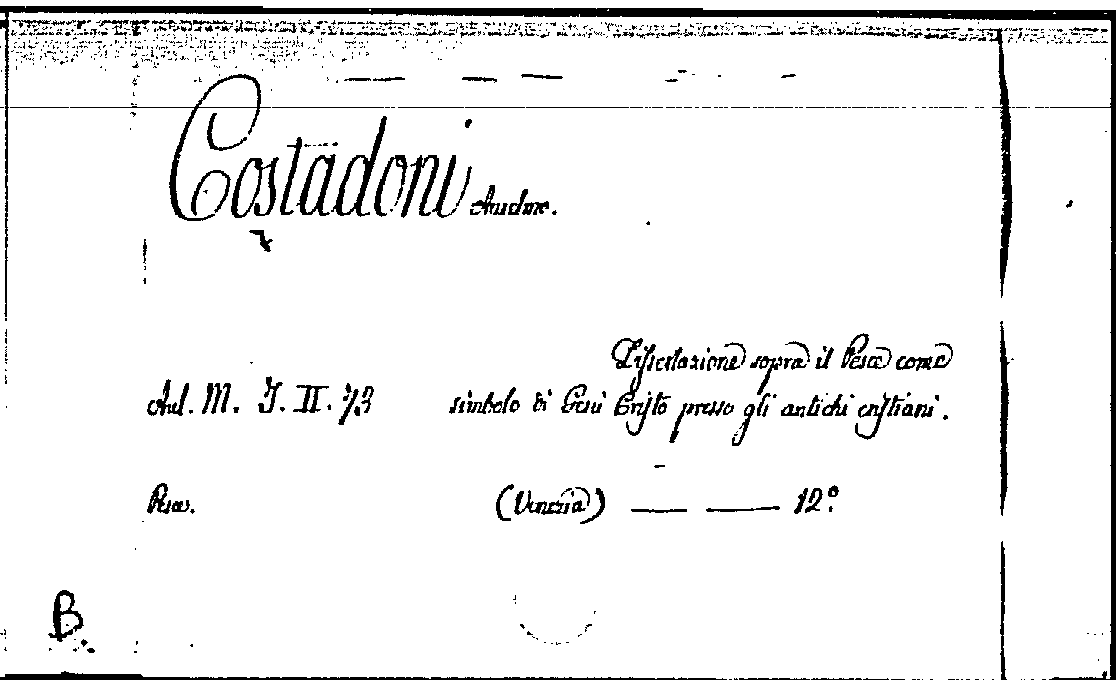 Costadoni
Dissertazione sopra il Pesce come
M. I. II. 73
simbolo di Gesù Cristo presso gli antichi cristiani.
Pesce.
(Venezia) — — 12.º
B.